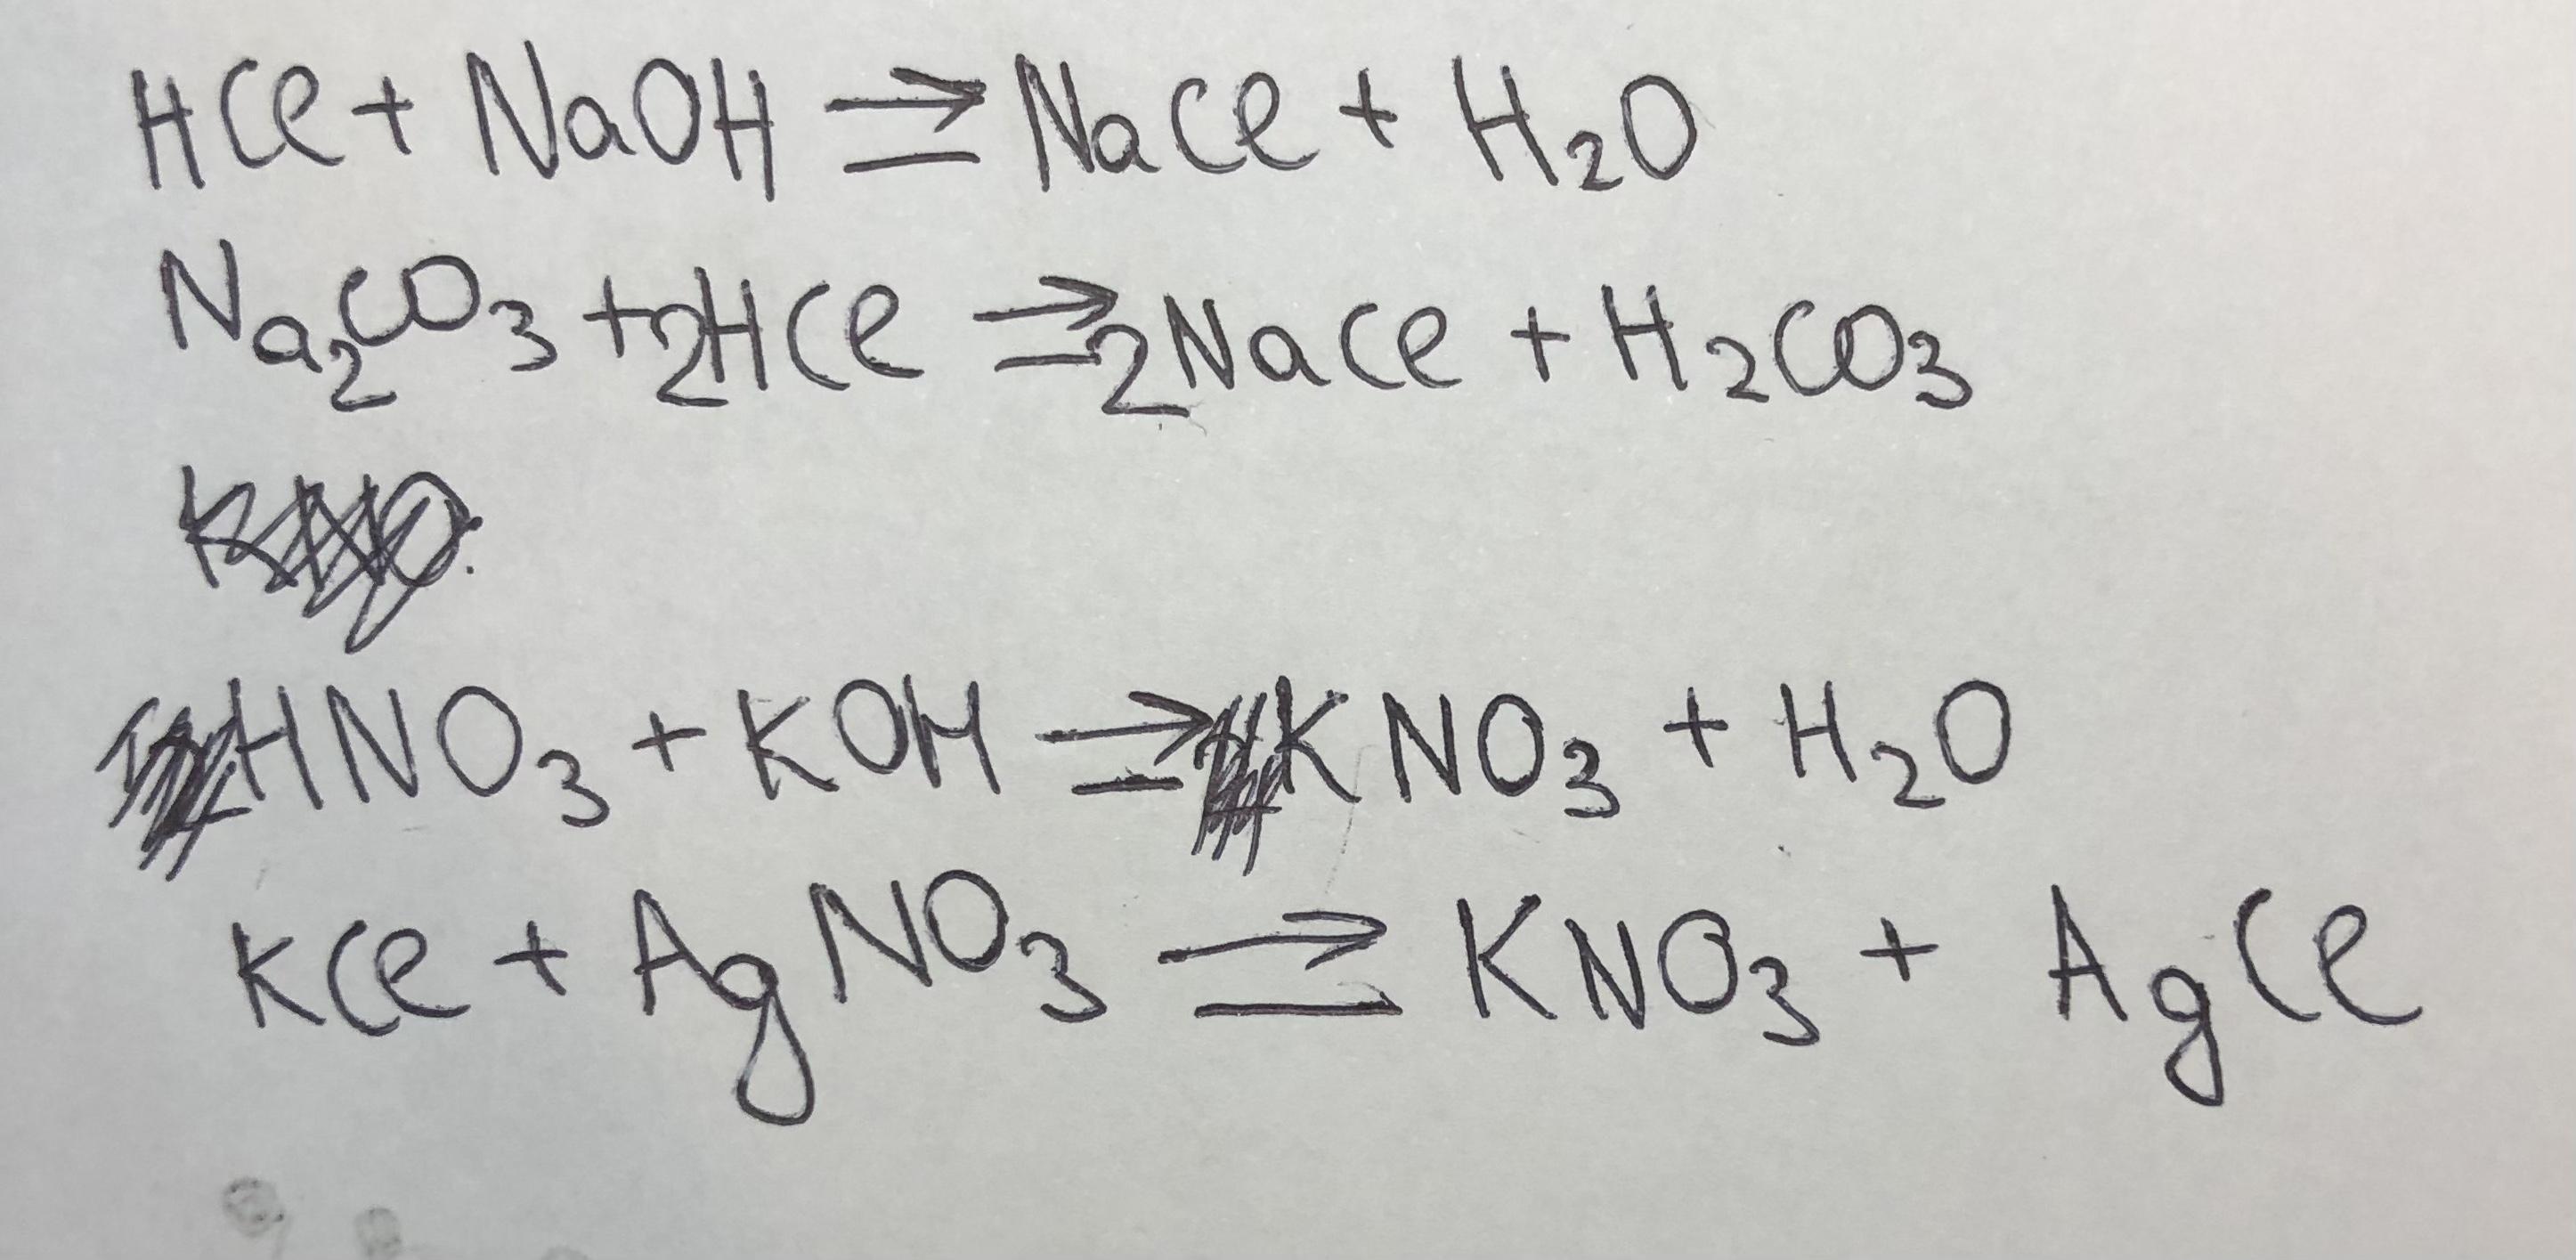 HCl + NaOH ⇒ NaCl + H₂O
Na₂CO₃ + 2HCl ⇒ 2NaCl + H₂CO₃
HNO₃ + KOH ⇒ KNO₃ + H₂O
KCl + AgNO₃ ⇒ KNO₃ + AgCl